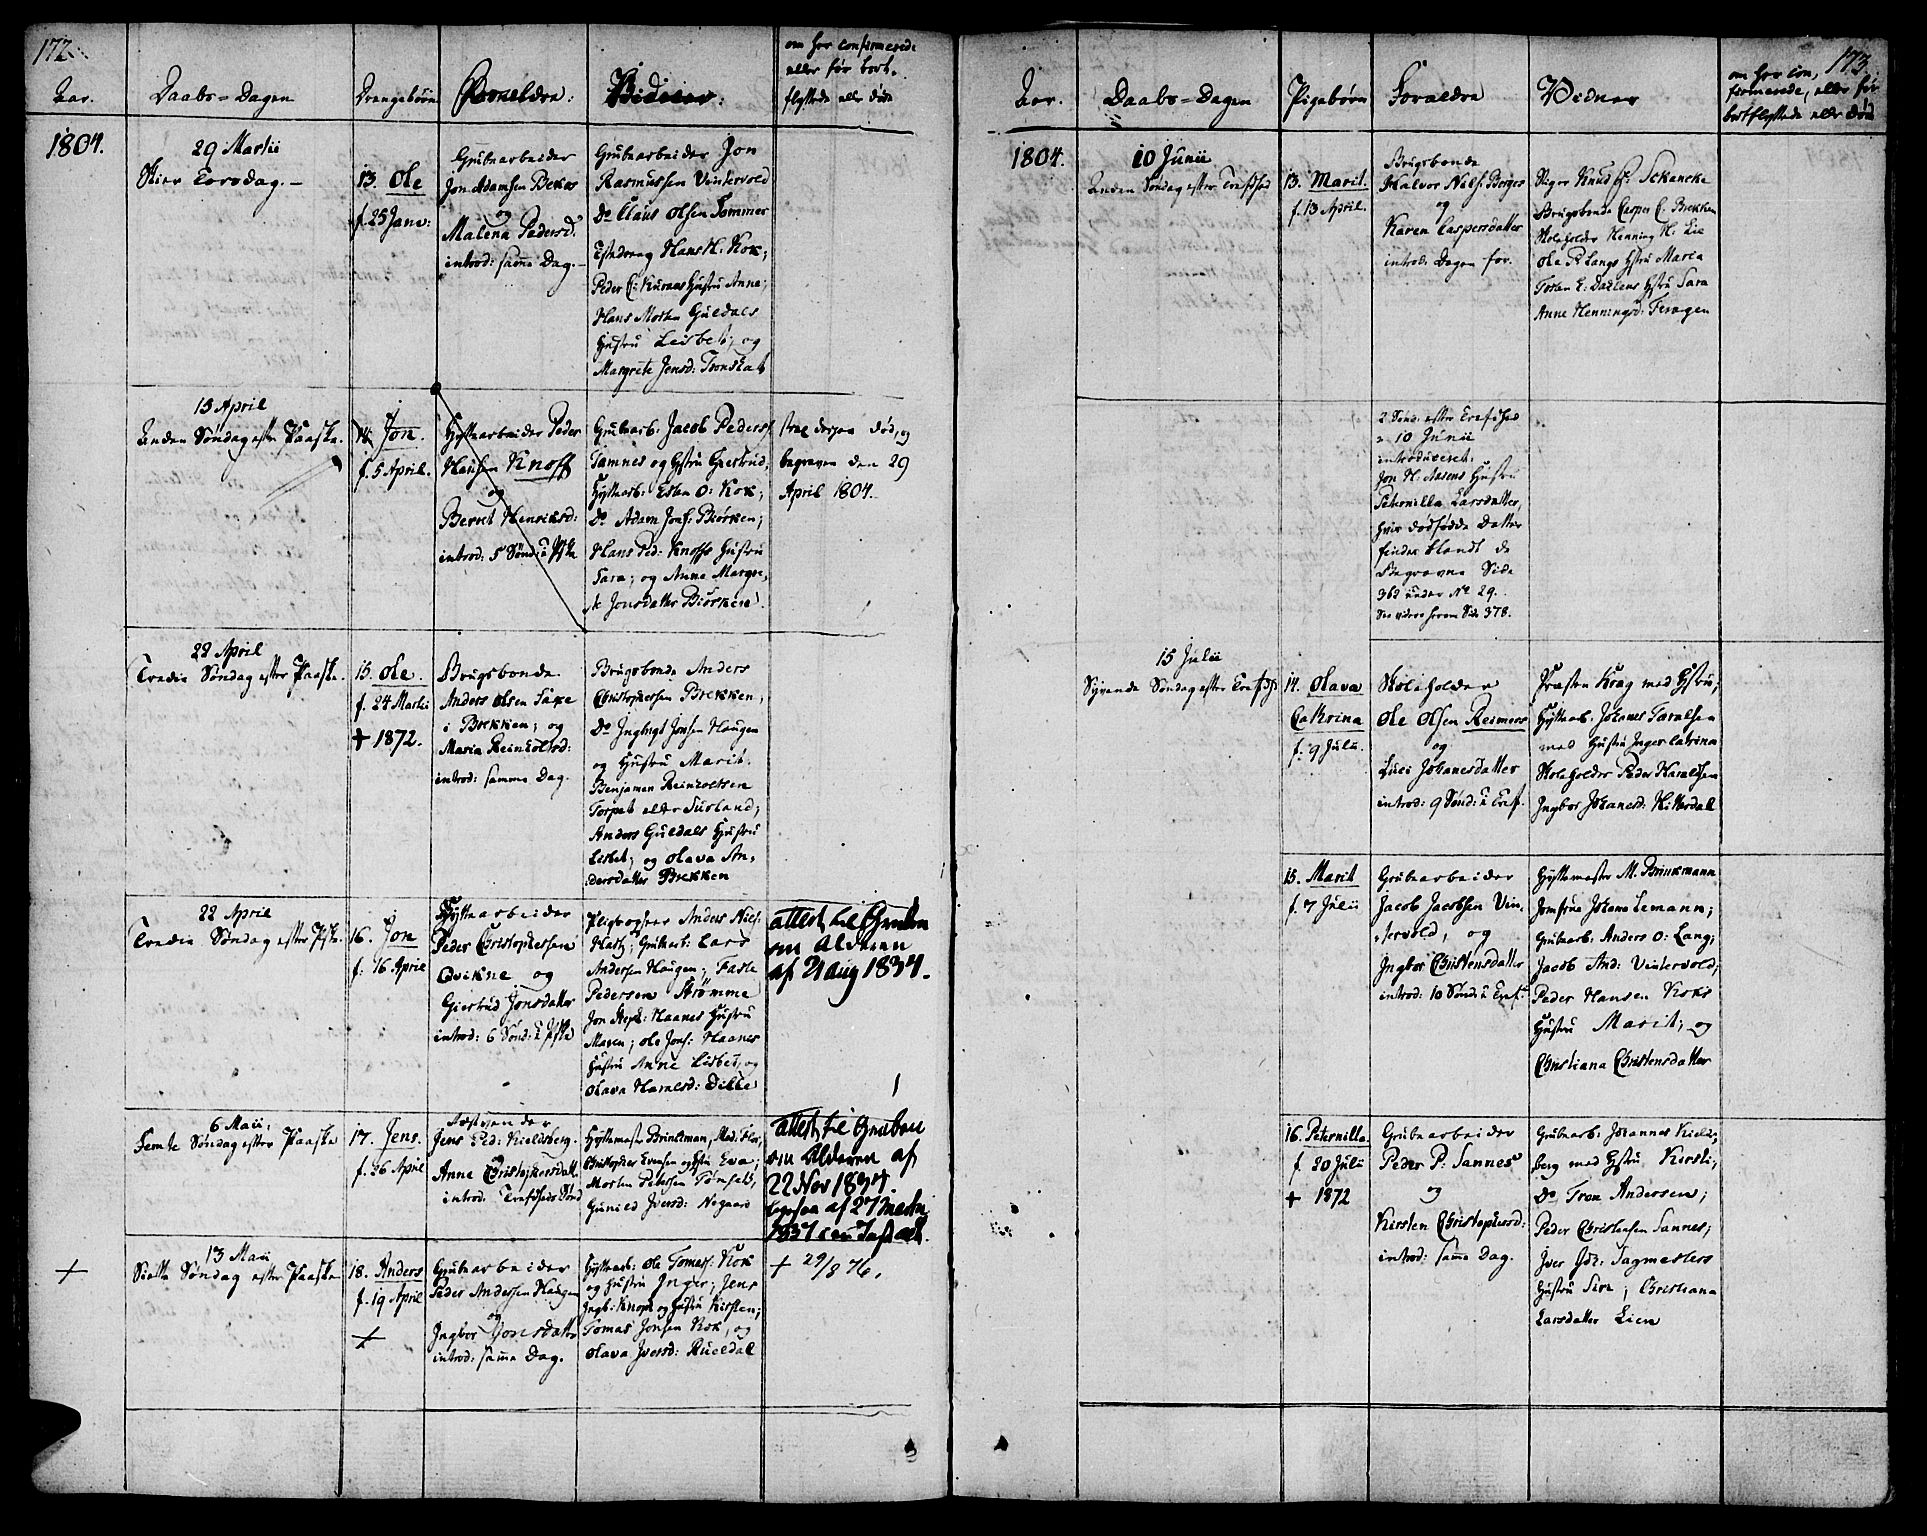 172
Aar.
Daabs-Dagen
Drengebørn
Forældre:
Vidner:
om her confirmerede
eller før bort-
flyttede eller døde
1804.
29 Martii
Skier Torsdag. –
13. Ole
f. 25 Janv:
Grubearbeider
Jon Adamsen Bekos
og
Malena Pedersd:
introd: samme Dag. –
Grubearbeider Jon
Rasmussen Vintervold
Do Claus Olsen Sommer
Hans H. Kok;
Peder C: Kuraas Hustru Anne;
Hans Morten Guldals
Hustru Lisbet; og
Margrete Jensd: Tronskat
15 April
Anden Søndag efter Paaske.
14. Jon.
f. 5 April.
Hyttearbeider Peder
Hansen Knoff
og
Beret Henriksd:
introd: 5 Sønd: i Pske
Grubearb: Jacob Peders:
Tamnes og Hstru Giertrud;
Hyttearb: Esten O: Kok;
Do Adam Jons: Biörken;
Hans Ped: Knoffs Hustru
Sara; og Anne Margre,
te Jonsdatter Biörken.
strax derpaa død, og
begraven den 29
April 1804.
22 April
Tredie Søndag efter Paaske.
15. Ole.
f. 24 Martii
+ 1872.
Brugsbonde
Anders Olsen Saxe
i Brekken; og
Maria Reinholtsd:
introd: samme Dag.
Brugsbonde Anders
Christophersen Brekken;
Do Ingbrigt Jonsen Haugen
og Hustru Marit.
Benjamin Reinholtsen
Torpet eller Surland;
Anders Guldals Hustru
Lisbet; og Olava An,
dersdatter Brekken
22 April
Tredie Søndag efter Pske.
16. Jon
f. 16 April
Hyttearbeider
Peder Christophersen
Qvikne og
Giertrud Jonsdatter
introd: 6 Sønd: i Pske
Anders Niels:
Hartz; Grubearb: Lars
Andersen Haugen; Faste
Pedersen Strömme
Jon Steph: Haanes Hustru
Maren; Ole Jons: Haanes
Hustru Anne Lisbet, og
Olava Haralsd: Dille
attest til Gruben
om Alderen
af 21 Aug 1834.
6 Maii,
Femte Søndag efter Paaske
17. Jens.
f. 26 April
Jens Ped: Kieldsberg.
og
Anne Christophersdatt.
introd: Trefoldheds Sønd
Hyttemester Brinkman, Mad: Flor,
Christopher Evensen og Hstru Eva;
Morten Petersen Tønset;
Gunild Iversd: Nygaard
attest til Gruben
om Alderen af
22 Nov 1834
13 Maii
Siette Søndag efter Paaske
18. Anders
f. 19 April
+
Grubearbeider
Peder Andersen Haugen
og
Ingbor Jonsdatter
introd: samme Dag.
Hyttearb: Ole Tomess: Kok
og Hustru Inger; Jens
Ingb: Knoph og Hustru Kirsten;
Tomas Jonsen Kok, og
Olava Iversd: Rueldal
+ 29/8 76.
173.
Aar.
Daabs-Dagen
Pigebørn
Forældre
Vidner
om her con,
firmerede, eller før
bortflyttede eller død
1804.
10 Junii
Anden Søndag efter Trefoldhed
13. Marit.
f. 13 April.
Brugsbonde
Halvor Nils: Borgos
og
Karen Caspersdatter
introd: Dagen før.
Stiger Knud H: Schancke
Brugsbonde Casper C: Brekken
Skoleholder Henning H. Lie
Ole P. Langs Hstru Maren
Torsten E: Daelens Hstru Sara
Anne Henningsd: Feragen
2 Sønd: efter Trefoldhed
10 Junii
introduceret.
Jon H. Aasens Hustru
Peternilla Larsdatter,
hvis dødfødde Datter
findes blandt de
Begravne Side
362 under No 29.
See videre herom Side 378.
15 Julii
Syvende Søndag efter Trefolds
14. Olava
Catrina
f. 9 Julii.
Skoleholder
Ole Olsen Reimers
og
Luci Johanesdatter
introd: 9 Sønd: i Tref.
Præsten Krag med Hstru;
Hyttearb: Johanes Taralsen
med Hustru Inger Catrina
Skoleholder Peder Haralsen
Ingbor Johanesd: Hitterdal
15. Marit
f. 7 Julii
Grubearbeider
Jacob Jacobsen Vin,
tervold, og
Ingbor Christensdatter
introd: 10 Sønd: i Tref.
Hyttemester M. Brinkmann
Jomfrue Johana Lemann;
Grubearb: Anders O: Lang;
Jacob And: Vintervold;
Peder Hansen Koks
Hustru Marit; og
Christiana Christensdatter
16. Peternilla
f. 20 Julii
+ 1872
Grubearbeider
Peder P: Sannes
og
Kirsten Christophersd:
introd: samme Dag.
Grubearb: Johannes Kields,
berg med Hstru Kirsti;
Do Tron Andersen;
Peder Christensen Sannes;
Iver Joh: Sagmesters
Hustru Siri; Christiana
Larsdatter Lien